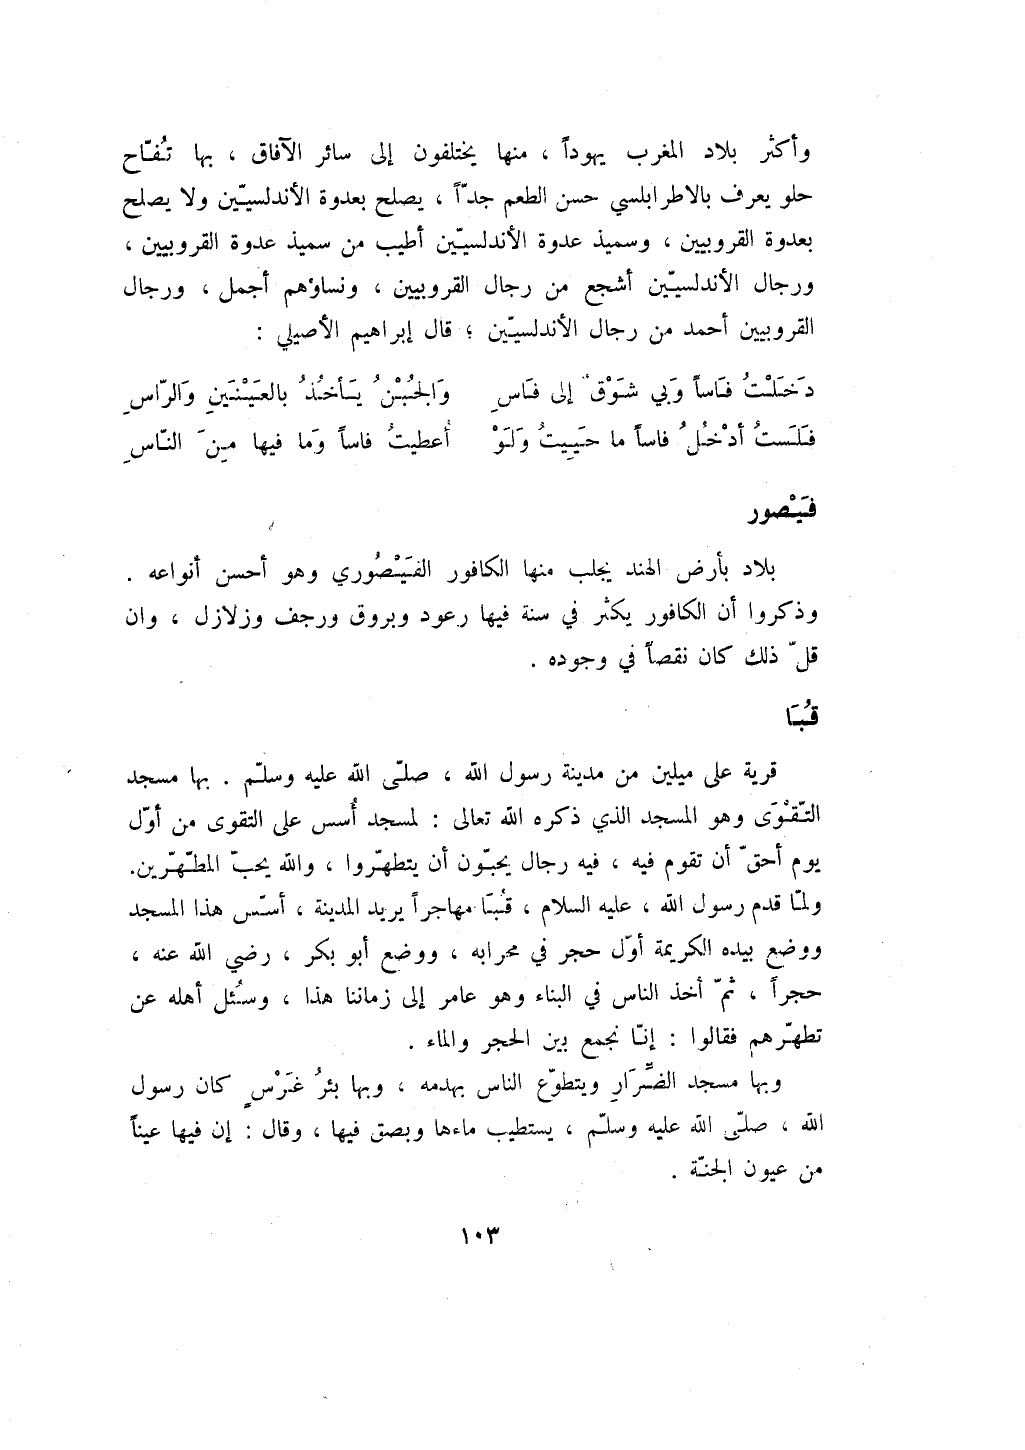 وأكثر بلاد المغرب يهوداً ، منها يختلفون إلى سائر الآفاق ، بها تُفّاح
حلو يعرف بالاطرابلسي حسن الطعم جدّاً ، يصلح بعدوة الأندلسيّين ولا يصلح
بعدوة القرويين ، وسميذ عدوة الأندلسيّين أطيب من سميذ عدوة القرويين ،
ورجال الأندلسيّين أشجع من رجال القرويين ، ونساؤهم أجمل ، ورجال
القرويين أحمد من رجال الأندلسيّين ؛ قال إبراهيم الأصيلي :
دَخَلْتُ فَاساً وَبي شَوْقٌ إلى فَاسِ وَالجُبْنُ يَأخُذُ بالعَيْنَينِ وَالرّاسِ
فَلَستُ أدْخُلُ فاساً ما حَيِيتُ وَلَوْ أُعطيتُ فاساً وَما فيها مِنَ النّاسِ
فَيْصور
بلاد بأرض الهند يجلب منها الكافور الفَيْصُوري وهو أحسن أنواعه .
وذكروا أن الكافور يكثر في سنة فيها رعود وبروق ورجف وزلازل ، وان
قلّ ذلك كان نقصاً في وجوده .
قُبَا
قرية على ميلين من مدينة رسول الله ، صلّى الله عليه وسلّم . بها مسجد
التّقْوَى وهو المسجد الذي ذكره الله تعالى : لمسجد أُسس على التقوى من أوّل
يوم أحقّ أن تقوم فيه ، فيه رجال يحبّون أن يتطهّروا ، والله يحبّ المطّهّرين.
ولمّا قدم رسول الله ، عليه السلام ، قُبَا مهاجراً يريد المدينة ، أسّس هذا المسجد
ووضع بيده الكريمة أوّل حجر في محرابه ، ووضع أبو بكر ، رضي الله عنه ،
حجراً ، ثمّ أخذ الناس في البناء وهو عامر إلى زماننا هذا ، وسُئل أهله عن
تطهّرهم فقالوا : إنّا نجمع بين الحجر والماء .
وبها مسجد الضِّرَارِ ويتطوّع الناس بهدمه ، وبها بئرُ غَرْسٍ كان رسول
الله ، صلّى الله عليه وسلّم ، يستطيب ماءها وبصق فيها ، وقال : إن فيها عيناً
من عيون الجنّة .
١٠٣